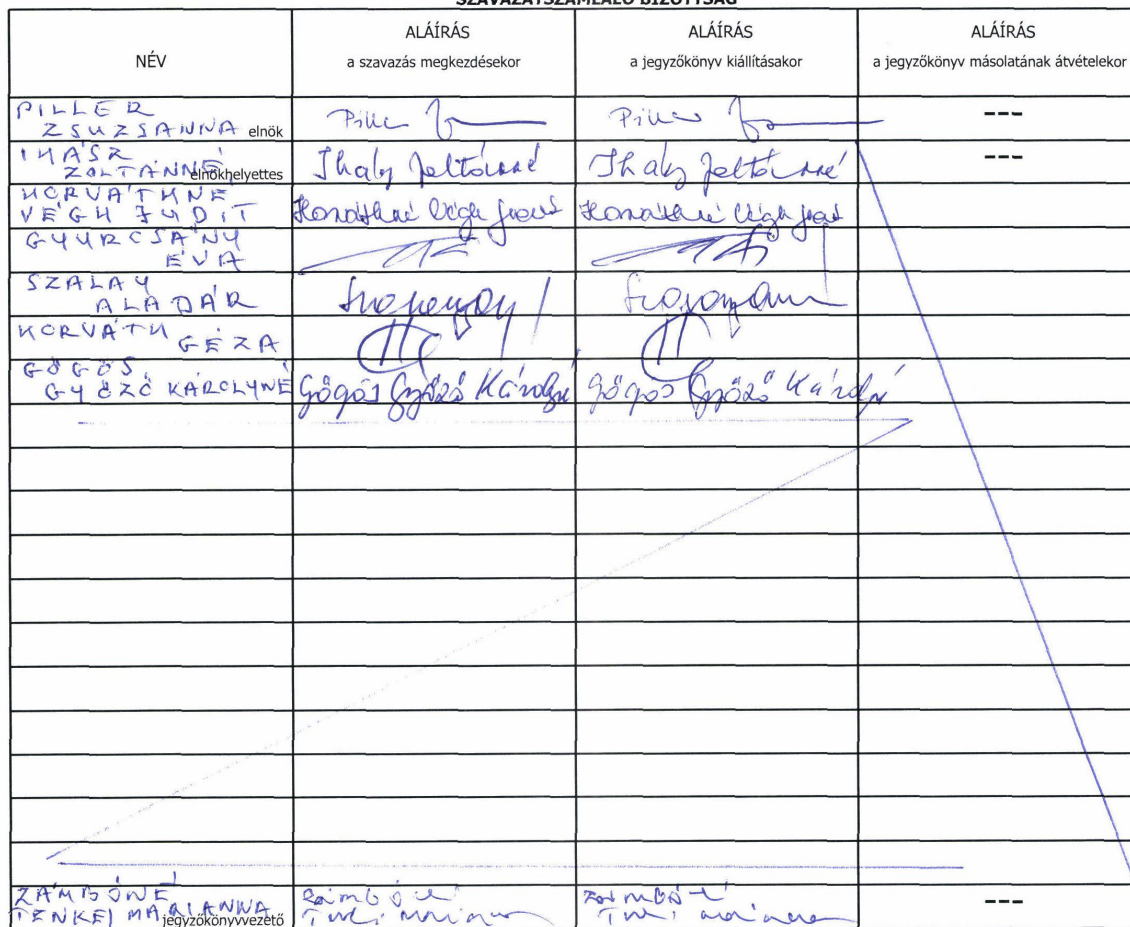 SZAVAZATSZÁMLÁLÓ BIZOTTSÁG
NÉV
ALÁÍRÁS
a szavazás megkezdésekor
ALÁÍRÁS
a jegyzőkönyv kiállításakor
ALÁÍRÁS
a jegyzőkönyv másolatának átvételekor
PILLER
ZSUZSANNA elnök
Piller
Piller
---
IHÁSZ
ZOLTÁNNÉ elnökhelyettes
Ihász Zoltánné
Ihász Zoltánné
---
HORVÁTHNÉ
VÉGH JUDIT
Horváthné Végh Judit
Horváthné Végh Judit
GYURCSÁNY
ÉVA
SZALAY
ALADÁR
HORVÁTH
GÉZA
GÖGÖS
GYŐZŐ KÁROLYNÉ
Gögös Győző Károlyné
Gögös Győző Károlyné
ZÁMBÓNÉ
TENKEI MARIANNA jegyzőkönyvvezető
Zámbóné
Zámbóné
---